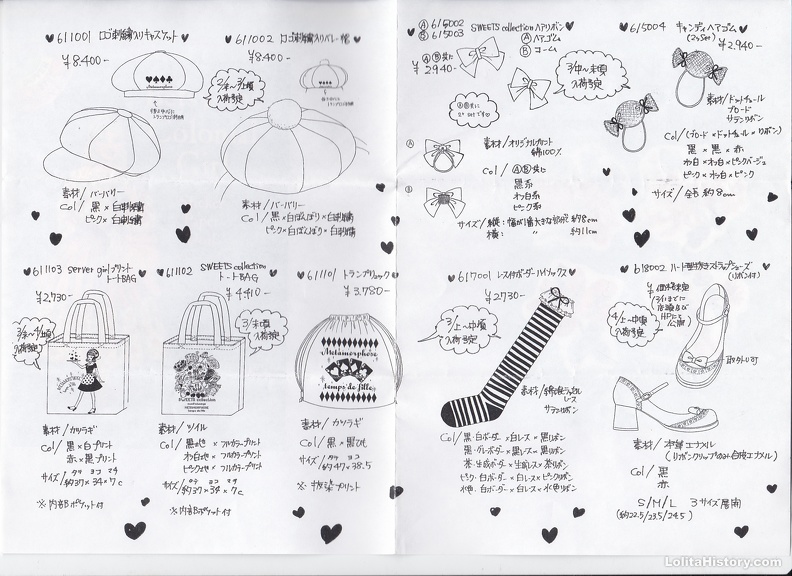 ♥ 611001 ロゴ刺繍入りキャスケット
¥8.400-
♥ 611002 ロゴ刺繍入りベレー帽
¥8.400-
2/末〜3/上頃
入荷予定
素材/バーバリー
Col/黒×白刺繍
ピンク×白刺繍
素材/バーバリー
Col/黒×白ぼんぼり×白刺繍
ピンク×白ぼんぼり×白刺繍
♥ 611103 server girlプリント
トートBAG
¥2.730-
3/末〜4/上頃
入荷予定
素材/カツラギ
Col/黒×白プリント
赤×黒プリント
サイズ/タテ ヨコ マチ
約37×34×7c
※内皆Bポケット付
♥ 611102 SWEETS collection
トートBAG
¥4.410-
3/末頃
入荷予定
SWEETS collection
素材/ツイル
Col/黒地 × フルカラープリント
わ白地 × フルカラープリント
ピンク地 × フルカラープリント
サイズ/タテ ヨコ マチ
約37×34×7c
※内皆Bポケット付
♥ 611101 トランプリュック
¥3.780-
Metamorphose
temps de fille
素材/カツラギ
Col/黒×黒ひも
サイズ/タテ ヨコ
約47×38.5
※抜染プリント
♥ Ⓐ 615002 SWEETS collection ヘアリボン
Ⓑ 615003
Ⓐ ヘアゴム
Ⓑ コーム
ⒶⒷ共に
¥2940-
3/中〜末頃
入荷予定
ⒶⒷ共に
2ヶsetです♡
Ⓐ
Ⓑ
素材/オリジナルプリント
綿100%
Col/ⒶⒷ共に
黒系
わ白系
ピンク系
サイズ/縦: 幅が1番大きな部分 約8cm
横: 〃 約11cm
♥ 615004 キャンディヘアゴム
(2ヶset)
¥2.940-
素材/ドットチュール
ブロード
サテンリボン
Col/(ブロード×ドットチュール×リボン)
黒×黒×赤
わ白×わ白×ピンクベージュ
ピンク×わ白×ピンク
サイズ/全長約8cm
♥ 617001 レース付ボーダーハイソックス
¥2730-
3/上〜中頃
入荷予定
レース
サテンリボン
Col/黒・白ボーダー×白レース×黒リボン
黒・グレーボーダー×黒レース×黒リボン
茶・生成ボーダー×生成レース×茶リボン
ピンク・白ボーダー×白レース×ピンクリボン
水色・白ボーダー×白レース×水色リボン
♥ 618002 ハート型抜きストラップシューズ
(リボン付)
¥ 価格未定
3/1までに
店頭及び
HPにて
公開
4/上〜中頃
入荷予定
取外し可
素材/本体エナメル
(リボンクリップのみ合皮エナメル)
Col/黒
赤
S/M/L 3サイズ展開
(約22.5/23.5/24.5)
LolitaHistory.com